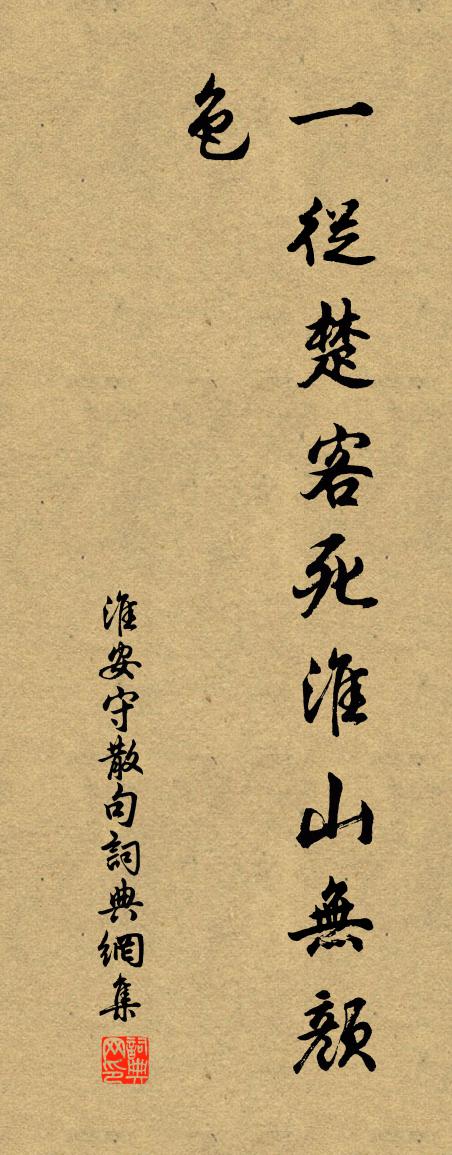 一從楚客死淮山無顏
色
淮安守散句詞典網集
詞典网印